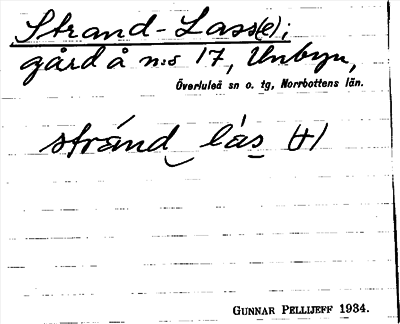 Strand-Lass(e);
gård å n:o 17, Unbyn,
Överluleå sn o. tg, Norrbottens län.
stránd‿ lás (+)
GUNNAR PELLIJEFF 1934.